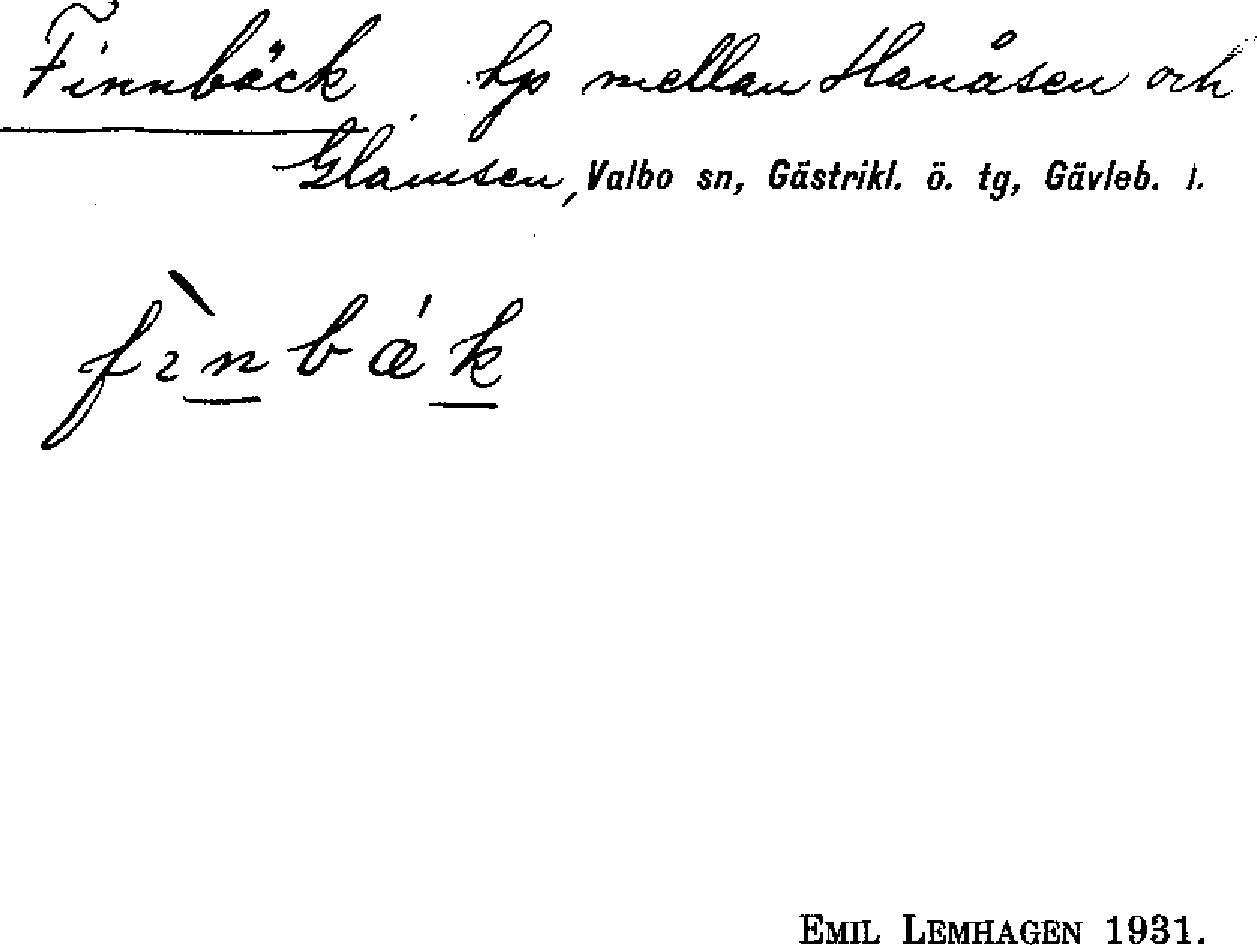 Finnbäck hp mellan Hanåsen och
Glamsen, Valbo sn, Gästrikl. ö. tg, Gävleb. l.
fìnbǽk
EMIL LEMHAGEN 1931.